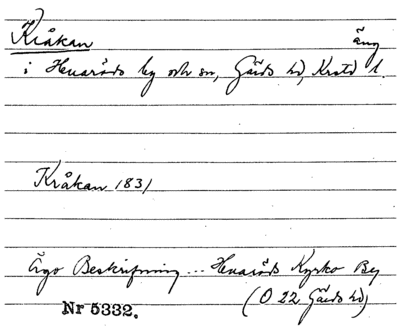 Kråkan äng
i Huaröds by och sn, Gärds hd, Krstd l.
Kråkan 1831
Ägo Beskrifning ... Huaröds Kyrko By
(O 22 Gärds hd)
Nr 5332.